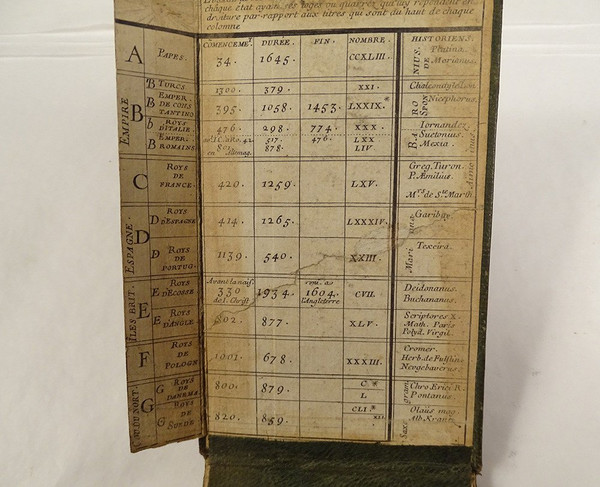 chaque état ayant ses loges ou quarrez qui luy répondent en
droiture par-rapport aux titres qui sont du haut de chaque
colomne
COMENCEME^T. DURÉE. FIN. NOMBRE. HISTORIENS.
A PAPES. 34. 1645. CCXLIII. Platina.
EMPIRE
B TURCS 1300. 379. XXI. Chalcondyle
B EMPER. DE CONSTANTINO 395. 1058. 1453. LXXIX.* Nicephorus.
b ROYS D'ITALIE 476. 298. 774. XXX. Tornandez
B EMPER. ROMAINS 517. 476. LXX Suetonius.
801. en Allemag. 878. LIV. Mexia.
C ROYS DE FRANCE. 420. 1259. LXV. Greg. Turon.
P. Æmilius.
M^rs de S^te Marth
ESPAGNE
D
D ROYS D'ESPAGNE 414. 1265. LXXXIV. Garibay.
D ROYS DE PORTUG. 1139. 540. XXIII. Texeira.
Mari
ILES BRIT.
E
E ROYS D'ECOSSE Avant la nais. 330 de I. Christ 1934. 1604. l'Angleterre CVII. Deidonanus.
Buchananus.
E ROYS D'ANGLE 802. 877. XLV. Scriptores X.
Math. Paris
Polyd. Virgil.
F ROYS DE POLOGN. 1001. 678. XXXIII. Cromer.
Herb. de Fulstin
Neugebaverus
DU NORT
G
G ROYS DE DANEMA. 800. 879. C* L Chro. Erici R.
Pontanus.
G ROYS DE SUEDE 820. 859. CLI.* Olaüs mag.
Alb. Krantz
Saxo gram